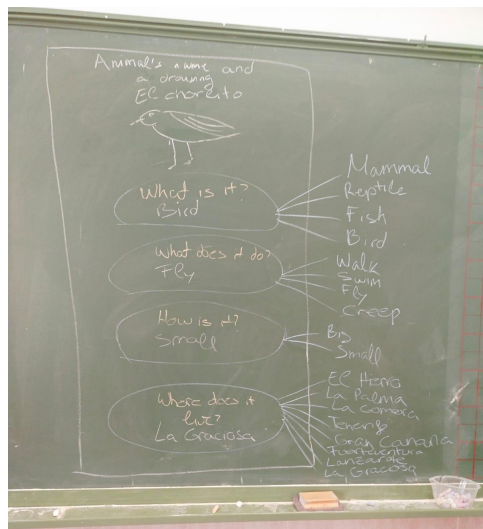 Animal's name and
a drawing
El chorlito
What is it?
Bird
Mammal
Reptile
Fish
Bird
What does it do?
Fly
Walk
Swim
Fly
Creep
How is it?
Small
Big
Small
Where does it
live?
La Graciosa
El Hierro
La Palma
La Gomera
Gran Canaria
Fuerteventura
Lanzarote
La Graciosa